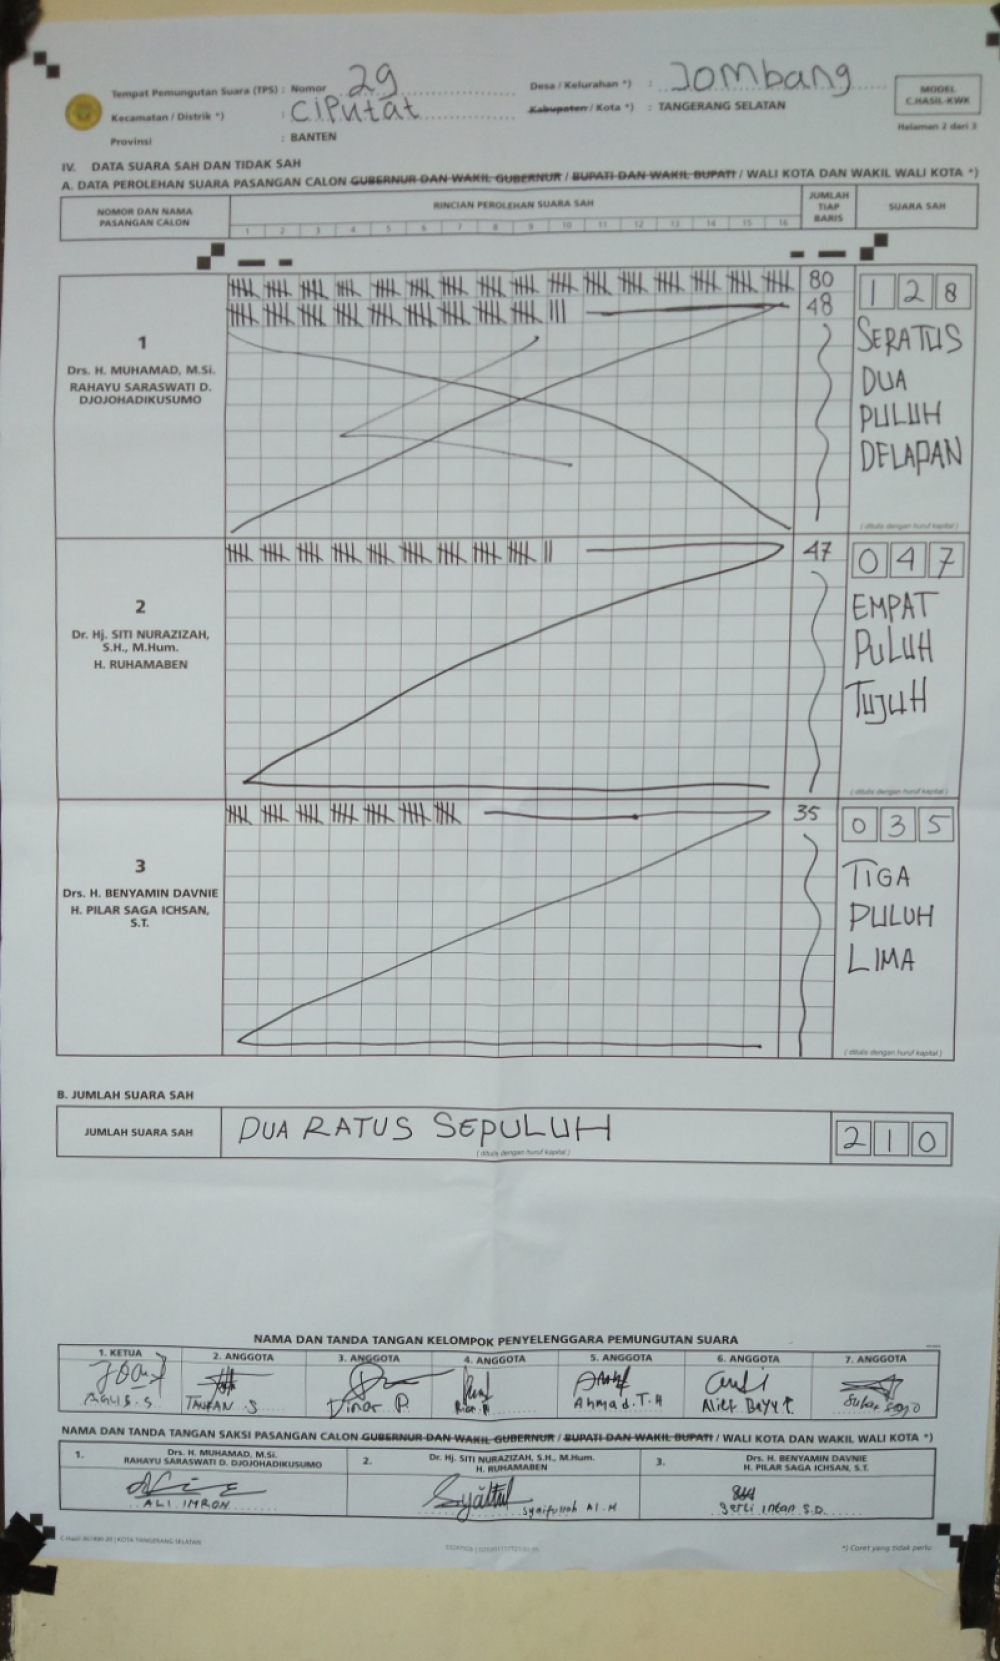 Tempat Pemungutan Suara (TPS) : Nomor 29
Desa / Kelurahan *) : Jombang
Kecamatan / Distrik *) : CiPutat
Kabupaten / Kota *) : TANGERANG SELATAN
Provinsi : BANTEN
MODEL
C.HASIL-KWK
Halaman 2 dari 3
IV. DATA SUARA SAH DAN TIDAK SAH
A. DATA PEROLEHAN SUARA PASANGAN CALON GUBERNUR DAN WAKIL GUBERNUR / BUPATI DAN WAKIL BUPATI / WALI KOTA DAN WAKIL WALI KOTA *)
NOMOR DAN NAMA
PASANGAN CALON
RINCIAN PEROLEHAN SUARA SAH
1 2 3 4 5 6 7 8 9 10 11 12 13 14 15 16
JUMLAH
TIAP
BARIS
SUARA SAH
1
Drs. H. MUHAMAD, M.Si.
RAHAYU SARASWATI D.
DJOJOHADIKUSUMO
80
48
1 2 8
SERATUS
DUA
PULUH
DELAPAN
(ditulis dengan huruf kapital)
2
Dr. Hj. SITI NURAZIZAH,
S.H., M.Hum.
H. RUHAMABEN
47
0 4 7
EMPAT
PULUH
TUJUH
(ditulis dengan huruf kapital)
3
Drs. H. BENYAMIN DAVNIE
H. PILAR SAGA ICHSAN,
S.T.
35
0 3 5
TIGA
PULUH
LIMA
(ditulis dengan huruf kapital)
B. JUMLAH SUARA SAH
JUMLAH SUARA SAH
DUA RATUS SEPULUH
(ditulis dengan huruf kapital)
2 1 0
NAMA DAN TANDA TANGAN KELOMPOK PENYELENGGARA PEMUNGUTAN SUARA
1. KETUA 2. ANGGOTA 3. ANGGOTA 4. ANGGOTA 5. ANGGOTA 6. ANGGOTA 7. ANGGOTA
AGUS.S TAUFAN .S Dinar P. Ahmad.T.H
NAMA DAN TANDA TANGAN SAKSI PASANGAN CALON GUBERNUR DAN WAKIL GUBERNUR / BUPATI DAN WAKIL BUPATI / WALI KOTA DAN WAKIL WALI KOTA *)
1. Drs. H. MUHAMAD, M.Si.
RAHAYU SARASWATI D. DJOJOHADIKUSUMO
2. Dr. Hj. SITI NURAZIZAH, S.H., M.Hum.
H. RUHAMABEN
3. Drs. H. BENYAMIN DAVNIE
H. PILAR SAGA ICHSAN, S.T.
ALI IMRON
Syaifulloh Al.M
Serli intan S.D.
KOTA TANGERANG SELATAN
*) Coret yang tidak perlu